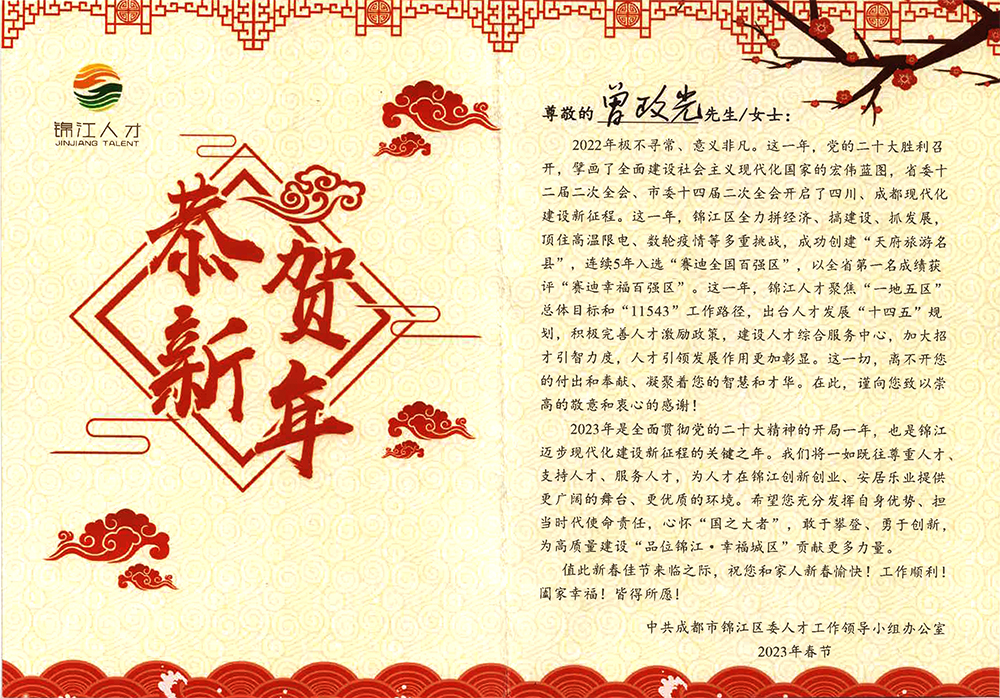 锦江人才
JINJIANG TALENT
恭贺
新年
尊敬的曾政光先生/女士：
2022年极不寻常、意义非凡。这一年，党的二十大胜利召
开，擘画了全面建设社会主义现代化国家的宏伟蓝图，省委十
二届二次全会、市委十四届二次全会开启了四川、成都现代化
建设新征程。这一年，锦江区全力拼经济、搞建设、抓发展，
顶住高温限电、数轮疫情等多重挑战，成功创建“天府旅游名
县”，连续5年入选“赛迪全国百强区”，以全省第一名成绩获
评“赛迪幸福百强区”。这一年，锦江人才聚焦“一地五区”
总体目标和“11543”工作路径，出台人才发展“十四五”规
划，积极完善人才激励政策，建设人才综合服务中心，加大招
才引智力度，人才引领发展作用更加彰显。这一切，离不开您
的付出和奉献、凝聚着您的智慧和才华。在此，谨向您致以崇
高的敬意和衷心的感谢！
2023年是全面贯彻党的二十大精神的开局一年，也是锦江
迈步现代化建设新征程的关键之年。我们将一如既往尊重人才、
支持人才、服务人才，为人才在锦江创新创业、安居乐业提供
更广阔的舞台、更优质的环境。希望您充分发挥自身优势、担
当时代使命责任，心怀“国之大者”，敢于攀登、勇于创新，
为高质量建设“品位锦江·幸福城区”贡献更多力量。
值此新春佳节来临之际，祝您和家人新春愉快！工作顺利！
阖家幸福！皆得所愿！
中共成都市锦江区委人才工作领导小组办公室
2023年春节